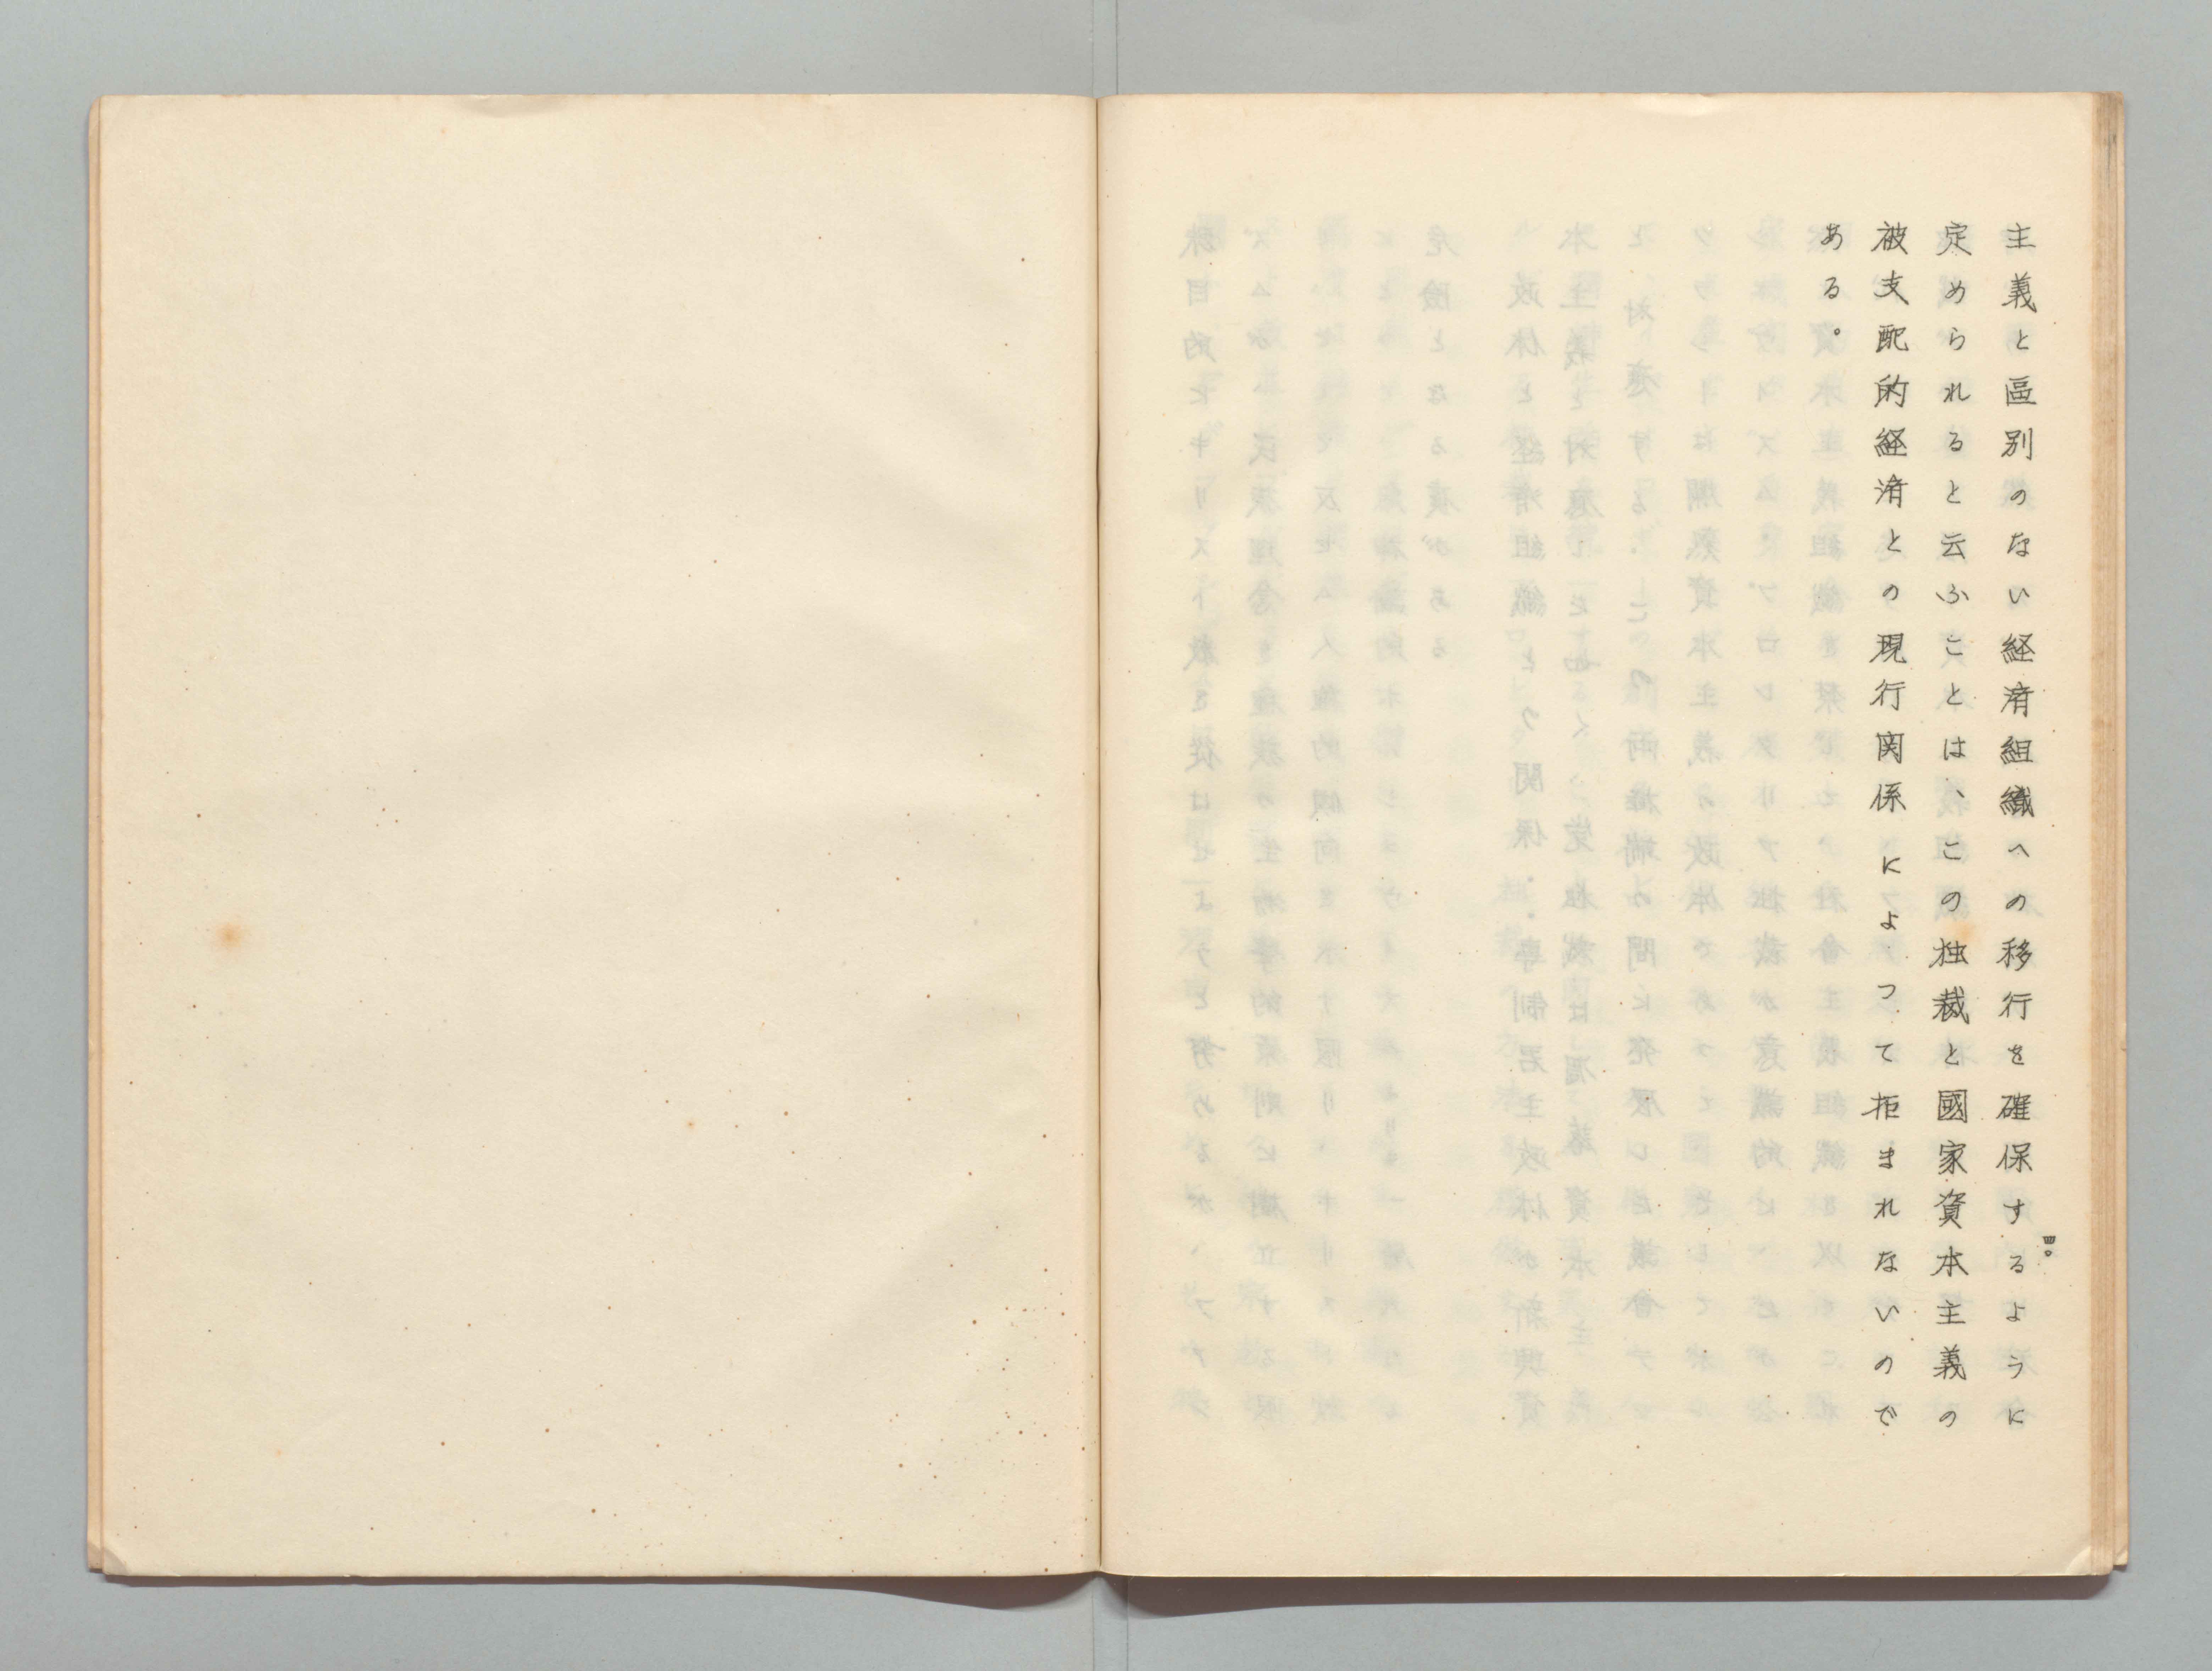 主義と區別のない経済組織への移行を確保するように
定められると云ふことは、この独裁と國家資本主義の
被支配的経済との現行関係によつて拒まれないので
ある。
四〇